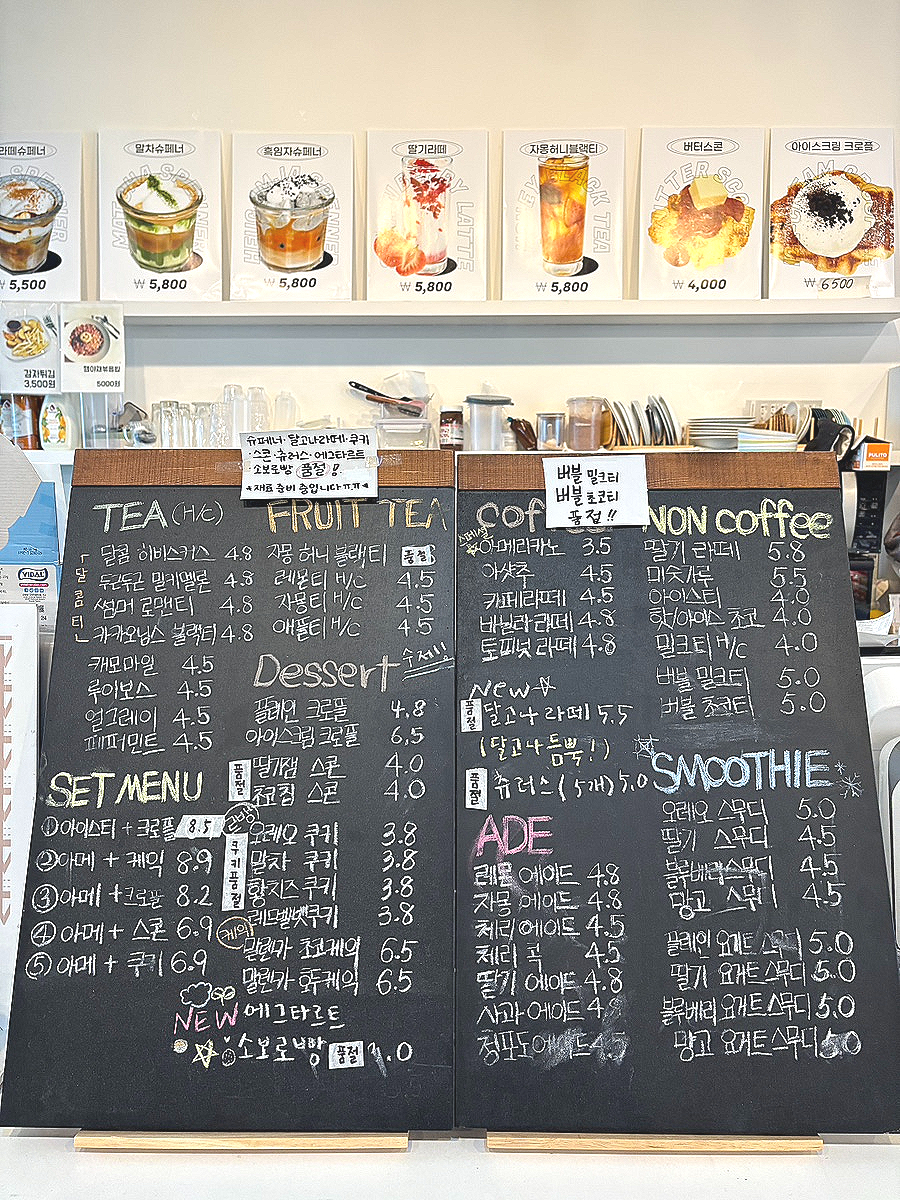 라떼슈페너
5,500
말차슈페너
₩ 5,800
흑임자슈페너
₩ 5,800
딸기라떼
₩ 5,800
자몽허니블랙티
₩ 5,800
버터스콘
₩ 4,000
아이스크림 크로플
₩ 6500
감자튀김
3,500원
5000원
슈페너·달고나라떼·쿠키
·스콘·츄러스·에그타르트
·소보로빵 품절!
*재료 준비 중입니다ㅠㅠ*
버블 밀크티
버블 초코티
품절!!
TEA (H/C)
달콤티
달콤 히비스커스 4.8
두근두근 밀키멜론 4.8
썸머 로맨티 4.8
카카오닙스 블랙티 4.8
캐모마일 4.5
루이보스 4.5
얼그레이 4.5
페퍼민트 4.5
SET MENU
① 아이스티 + 크로플 8.5
② 아메 + 케익 8.9
③ 아메 + 크로플 8.2
④ 아메 + 스콘 6.9
⑤ 아메 + 쿠키 6.9
FRUIT TEA
자몽 허니 블랙티 품절
레몬티 H/C 4.5
자몽티 H/C 4.5
애플티 H/C 4.5
Dessert 수제!!
플레인 크로플 4.8
아이스크림 크로플 6.5
품절
딸기잼 스콘 4.0
초코칩 스콘 4.0
쿠키품절
오레오 쿠키 3.8
말차 쿠키 3.8
황치즈 쿠키 3.8
레드벨벳쿠키 3.8
케익
말렌카 초코케익 6.5
말렌카 호두케익 6.5
NEW 에그타르트
소보로빵 품절 .0
Coffee
아메리카노 3.5
아샷추 4.5
카페라떼 4.5
바닐라 라떼 4.8
토피넛 라떼 4.8
New
품절
달고나 라떼 5.5
(달고나 듬뿍!)
품절
츄러스 (5개) 5.0
ADE
레몬 에이드 4.8
자몽 에이드 4.8
체리 에이드 4.5
체리 콕 4.5
딸기 에이드 4.8
사과 에이드 4.8
청포도에이드 4.5
NON Coffee
딸기 라떼 5.8
미숫가루 5.5
아이스티 4.0
핫/아이스 초코 4.0
밀크티 H/C 4.0
버블 밀크티 5.0
버블 초코티 5.0
SMOOTHIE
오레오 스무디 5.0
딸기 스무디 4.5
블루베리스무디 4.5
망고 스무디 4.5
플레인 요거트스무디 5.0
딸기 요거트스무디 5.0
블루베리 요거트스무디 5.0
망고 요거트스무디 5.0